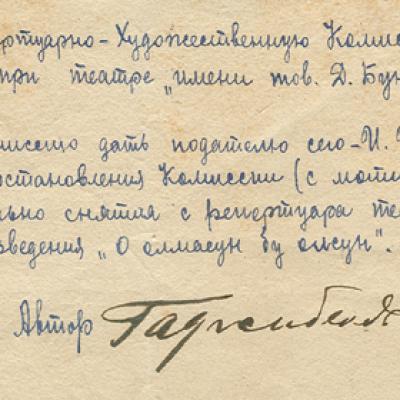 ртуарно-Художественную Комис
при театре „имени тов. Д. Бун
миссию дать подателю сего-И.
остановления Комиссии (с моти
льно снятия с репертуара те
зведения „О олмасун бу олсун".
Автор Гаджибеков